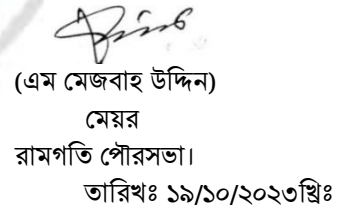 (এম মেজবাহ উদ্দিন)
মেয়র
রামগতি পৌরসভা।
তারিখঃ ১৯/১০/২০২৩খ্রিঃ